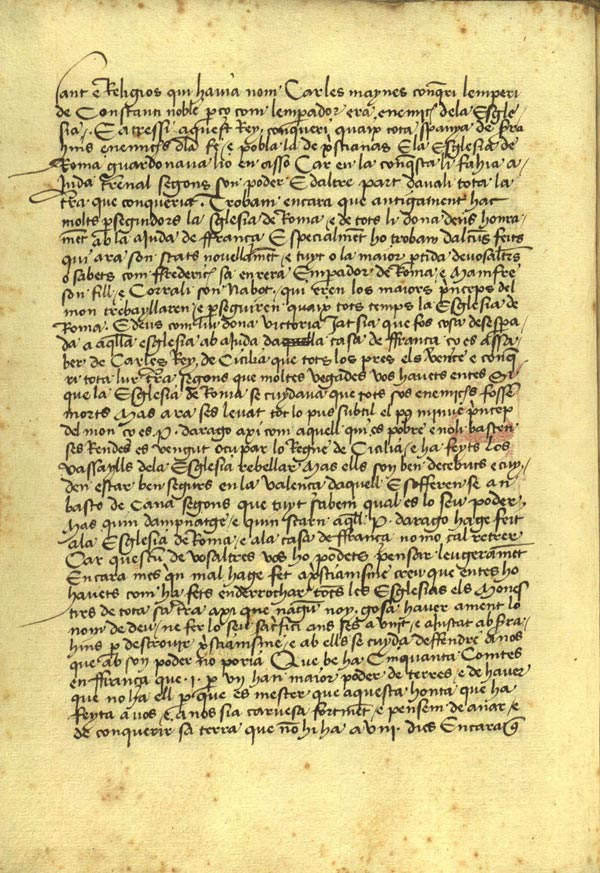 sant e Religios qui havia nom Carles maynes conq̃ri lemperi
de Constanti noble p̱ço com lemp̱ador era enemich dela Esgle-
sia. E atressi aquest Rey conqueri quaix tota Spanya de sra-
hins enemichs dla fe, e pobla la de p̃stianas E la Esglesia de
Roma guardonava lio en asso Car en la conq̃sta li fahia a-
juda trenal segons son poder E daltre part davali tota la
tr̃a que conqueria. Trobam encara que antigament hac
molts p̱seguidors la sglesia de Roma, e de tots li dona deus honra-
mẽt ab la ajuda de ffrança E specialmẽt ho trobam dalcuns feits
qui ara son stats novellamẽt, e tuyt o la maior p̱tida de vosaltr̃s
o sabets com ffrederich sa enrera Emp̱ador de Roma, e Mamfre
son fill, e Corrali son nabot, qui eren los maiors p̃nceps del
mon trebayllaren, e p̱seguiren quaix tots temps la Esglesia de
Roma. E deus com lili dona victoria Iatsia que fos cosa desesp̱a-
da a aq̃lla esglesia ab ajuda daquella casa de ffrança ço es assa-
ber de Carles Rey, de Cicilia que tots los pres els vence e conq̃-
ri tota lur tr̃ra segons que moltes vegades vos havets entes Si
que la Esglesia de Roma se cuydava que tots sos enemichs fossẽ
morts Mas ara ses levat tot lo pus subtil el pus minve p̃ncep
del mon ço es P. darago axi com aquell qui es pobre e noli basten
ses Rendes es vengut ocupar lo Regne de Cicilia, e ha feyts los
vassaylls dela Esglesia rebellar Mas ells son ben decebuts e cuy-
den estar ben segurs en la valença daquell E sofferen se a .i.
basto de Cana segons que tuyt sabem qual es lo seu poder.
Mas quin dampnatge, e quin scarn aq̃ll P. darago hage feit
ala Esglesia de Roma, e ala casa de ffrança no mo cal retrer
Car quescũ de vosaltres vos ho podets pensar leugeramẽt
Encara mes q̃n mal hage fet a p̃stianisme creu que entes ho
havets com ha fets enderrochar tots les Esglesias els Mones-
tirs de tota sa tr̃a axi que nagũ noy gosa haver ament lo
nom de deu, ne fer lo seu sac̃fici ans ses a unit, e aiustat ab sra-
hins p̱ destrouir p̃stianisme, e ab ells se cuyda deffendre anos
que ab son poder no poria Que be ha Cinquanta Comtes
en ffrança que .i. p̱ un han maior poder de terres, e de haver
que no ha ell p̱ que es mester que aquesta honta que ha
feyta a vos e a nos sia carvesa fortmẽt, e pensem de anar, e
de conquerir sa terra que nõ hi ha a uni. dies Encara q̃